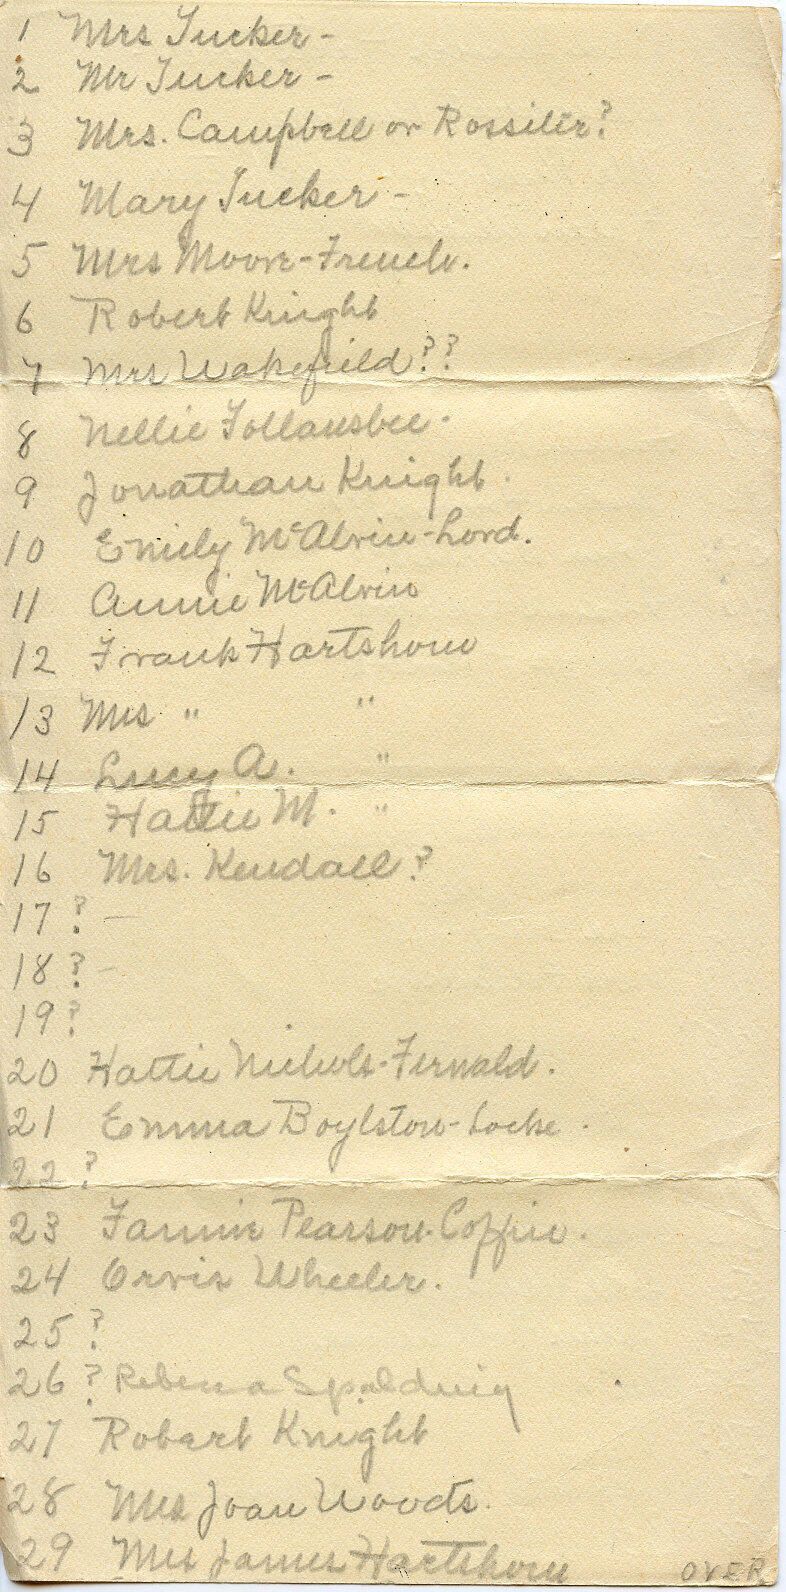 1 Mrs Tucker -
2 Mr Tucker -
3 Mrs. Campbell or Rossiter?
4 Mary Tucker -
5 Mrs Moore-French.
6 Robert Knight
7 Mrs Wakefield??
8 Nellie Follansbee -
9 Jonathan Knight.
10 Emily McAlvin-Lord.
11 Annie McAlvin
12 Frank Hartshorn
13 Mrs " "
14 Lucy A. "
15 Hattie M. "
16 Mrs. Kendall?
17 ? -
18 ? -
19 ?
20 Hattie Nichols-Fernald.
21 Emma Boylston-Locke.
22 ?
23 Fannie Pearson-Coffin.
24 Orvis Wheeler.
25 ?
26 ? Rebecca Spalding
27 Robert Knight
28 Mrs Joan Woods.
29 Mrs James Hartshorn
OVER.